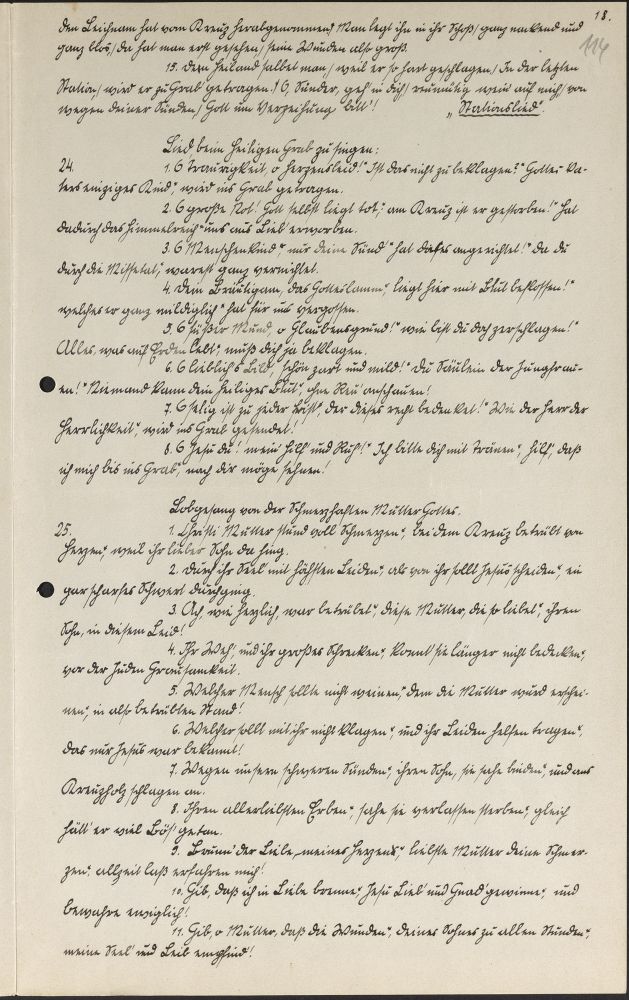 18.
114
den Leichnam hat vom Kreuz herabgenommen/ Man legt ihn in ihr Schoß/ ganz nackend und
ganz blos,/ da hat man erst gesehen/ seine Wunden also groß.
15. Dem Heiland salbet man,/ weil er so hart geschlagen,/ In der letzten
Station,/ wird er zu Grab getragen./ O, Sünder, geh in dich,/ reumütig wein auf mich,/ von
wegen deiner Sünden,/ Gott um Verzeihung bitt'!
"Stationslied".
Lied beim heiligen Grab zu singen:
24.
1. O Traurigkeit, o Herzensleid!" Ist das nicht zu beklagen?" Gottes Va-
ters einziges Kind" wird ins Grab getragen.
2. O große Not! Gott selbst liegt tot," am Kreuz ist er gestorben!" hat
dadurch das Himmelreich" uns aus Lieb' erworben.
3. O Menschenkind," nur deine Sünd" hat dieses angerichtet!" Da du
durch die Missetat," warest ganz vernichtet.
4. Dein Bräutigam, das Gotteslamm," liegt hier mit Blut beflossen!"
welches er ganz mildiglich" hat für uns vergossen.
5. O süßer Mund, o Glaubensgrund!" wie bist du doch zerschlagen!"
Alles, was auf Erden lebt," muß dich ja beklagen.
6. O lieblich's Bild, schön zart und mild!" Du Söhnlein der Jungfrau-
en!" Niemand kann dein heiliges Blut," ohne Reu' anschauen!
7. O selig ist zu jeder Frist," der dieses recht bedenket!" Wie der Herr der
Herrlichkeit," wird ins Grab gesendet!
8. O Jesu du! mein' Hilf und Ruh!" Ich bitte dich mit Tränen," hilf, daß
ich mich bis ins Grab," nach dir möge sehnen!
Lobgesang von der Schmerzhaften Mutter Gottes.
25.
1. Christi Mutter stund voll Schmerzen," bei dem Kreuz betrübt von
Herzen," weil ihr lieber Sohn da hing.
2. Durch ihr Seel' mit höchsten Leiden," als von ihr sollt Jesus scheiden," ein
gar scharfes Schwert durchging.
3. Ach, wie herzlich, war betrübet," diese Mutter, die so liebet," ihren
Sohn, in diesem Leid!
4. Ihr Weh', und ihr großes Schrecken," konnt' sie länger nicht bedecken,"
vor der Juden Grausamkeit.
5. Welcher Mensch sollte nicht weinen," dem die Mutter würd erschei-
nen," in also betrübten Stand!
6. Welcher sollt mit ihr nicht klagen," und ihr Leiden helfen tragen,"
das nur Jesus war bekannt!
7. Wegen unsern schweren Sünden," ihren Sohn, sie sahe binden," und ans
Kreuzholz schlagen an.
8. Ihren allerliebsten Erben," sahe sie verlassen sterben," gleich
hätt' er viel Bös' getan.
9. Brunn' der Liebe, meines Herzens," liebste Mutter deine Schmer-
zen," allzeit laß erfahren mich!
10. Gib, daß ich in Liebe brenne," Jesu Lieb' und Gnad' gewinne," und
bewahre ewiglich!
11. Gib, o Mutter, daß die Wunden," deines Sohnes zu allen Stunden,"
meine Seel' und Leib empfind'!